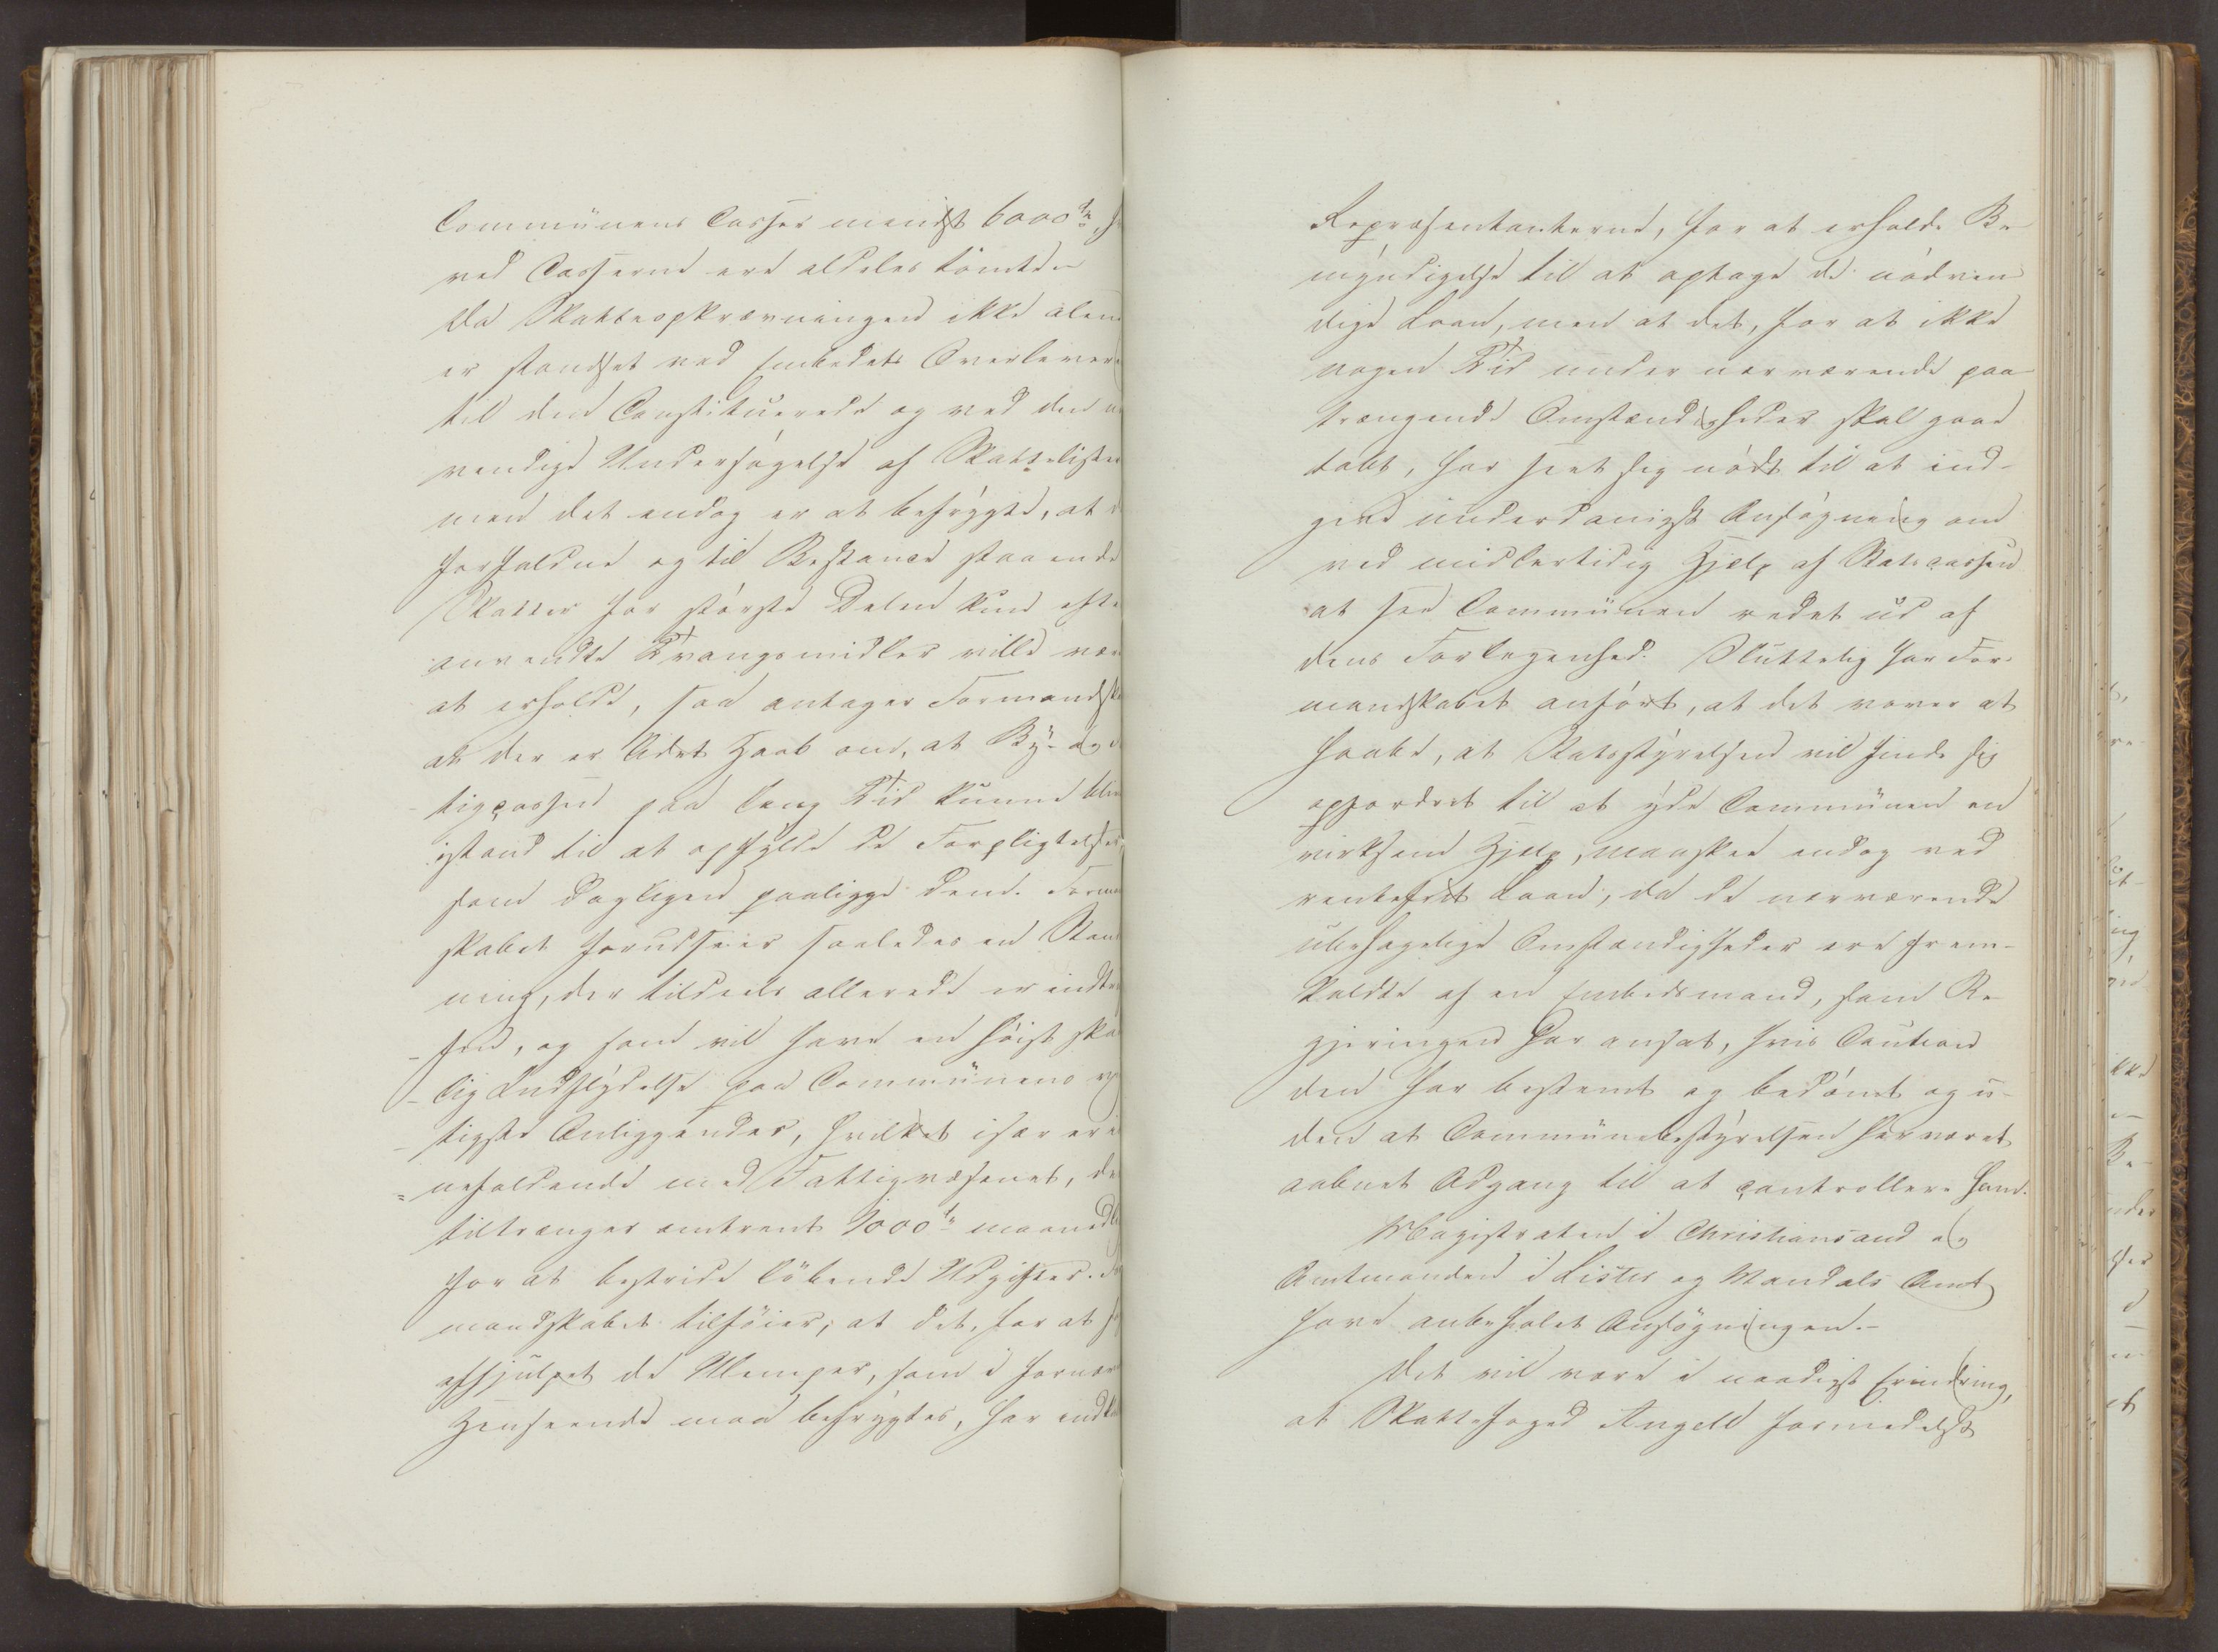 Communens Casser mindst 6000 
ved Casserne ere aldeles tömte
da Skatteopkrævningen ikke alene
er standset ved Embedets Overlever
til den Constituerede og ved den
vendige Undersøgelse af Skattelister
men det endog er at befrygte, at
forfaldne og til Restance staaende
Skatter for störste Delen kun efter
anvendte Tvangsmidler ville være
at erholde, saa antager Formandsk
at der er lidet Haab om, at By- og
tigcassen paa lang Tid kunne blive
istand til at opfylde de Forpligtelser
som dagligen paaligge dem. Form
skabet forudseer saaledes en Stand
ning, der tildeels allerede er indt
fen, og som vil have en höist ska
lig Indflydelse paa Communens
tigste Anliggender, hvilket især er
nefaldende med Fattigvæsenet, der
tiltrænger omtrent 1000 maanedl
for at bestride löbende Udgifter.
mandskabet tilföier, at det, for at
afhjulpet de Ulemper, som i fornæv
Henseende maa befrygtes, har
Repræsentanterne, for at erholde Be
myndigelse til at optage de nödven
dige Laan, men at det, for at ikke
nogen Tid under nærværende paa
trængende Omstændigheder skal gaae
tabt, har seet sig nödt til at ind-
give underdanigst Ansögning om
ved midlertidig Hjelp af Statscassen
at see Communen reddet ud af
dens Forlegenhed. Sluttelig har For-
mandskabet anfört, at det vover at
haabe, at Statsstyrelsen vil finde sig
opfordret til at yde Communen en
virksom Hjelp, maaskee endog ved
rentefrit Laan, da de nærværende
ubehagelige Omstændigheder ere frem-
kaldte af en Embedsmand, som Re-
gjeringen har ansat, hvis Caution
den har bestemt og bedömt og u-
den at Communebestyrelsen har været
aabnet Adgang til at controllere ham.
Magistraten i Christiansand og
Amtmanden i Lister og Mandals Amt
have anbefalet Ansögningen.-
Det vil være i naadigst Erindring,
at Skattefoged Angell formedelst